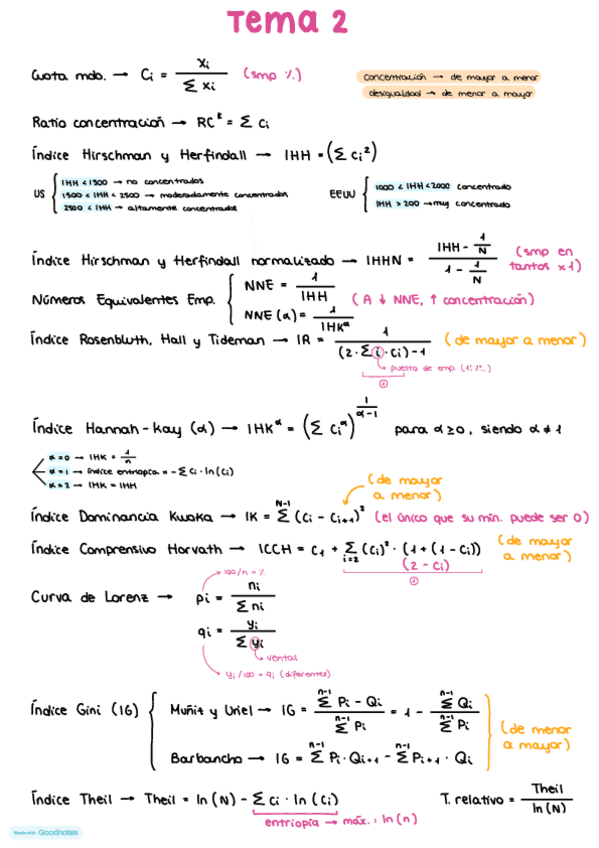 Tema 2
Cuota mdo. → Ci = Xi / Σ Xi (smp %.)
concentración → de mayor a menor
desigualdad → de menor a mayor
Ratio concentración → RC^k = Σ Ci
Índice Hirschman y Herfindall → IHH = (Σ Ci²)
US { IHH < 1500 → no concentrados
1500 < IHH < 2500 → moderadamente concentrados
2500 < IHH → altamente concentrados
EEUU { 1000 < IHH < 2000 concentrado
IHH > 200 → muy concentrado
Índice Hirschman y Herfindall normalizado → IHHN = (IHH - 1/N) / (1 - 1/N) (smp en tantos x1)
Números Equivalentes Emp. { NNE = 1 / IHH (A ↓ NNE, ↑ concentración)
NNE (α) = 1 / IHK^α
Índice Rosenbluth, Hall y Tideman → IR = 1 / ((2 · Σ i · Ci) - 1) (de mayor a menor)
→ puesto de emp. (1º, 2º...)
①
Índice Hannah-Kay (α) → IHK^α = (Σ Ci^α)^(1/(α-1)) para α ≥ 0, siendo α ≠ 1
α = 0 → IHK = 1/n
α = 1 → índice entropía = - Σ Ci · ln (Ci)
α = 2 → IHK = IHH
(de mayor a menor)
Índice Dominancia Kwoka → IK = Σ^(N-1) (Ci - Ci+1)² (el único que su mín. puede ser 0)
Índice Comprensivo Horvath → ICCH = C1 + Σ i=2 (Ci)² · (1 + (1 - Ci)) (de mayor a menor)
(2 - Ci)
①
100/n = %
Curva de Lorenz → pi = ni / Σ ni
qi = yi / Σ yi
→ ventas
yi/100 = qi (diferentes)
Índice Gini (IG) { Muñiz y Uriel → IG = Σ^(n-1) Pi - Qi / Σ^(n-1) Pi = 1 - Σ^(n-1) Qi / Σ^(n-1) Pi
(de menor a mayor)
Barbancho → IG = Σ^(n-1) Pi · Qi+1 - Σ^(n-1) Pi+1 · Qi
Índice Theil → Theil = ln (N) - Σ Ci · ln (Ci) T. relativo = Theil / ln (N)
entriopía → máx. : ln (n)
Made with Goodnotes